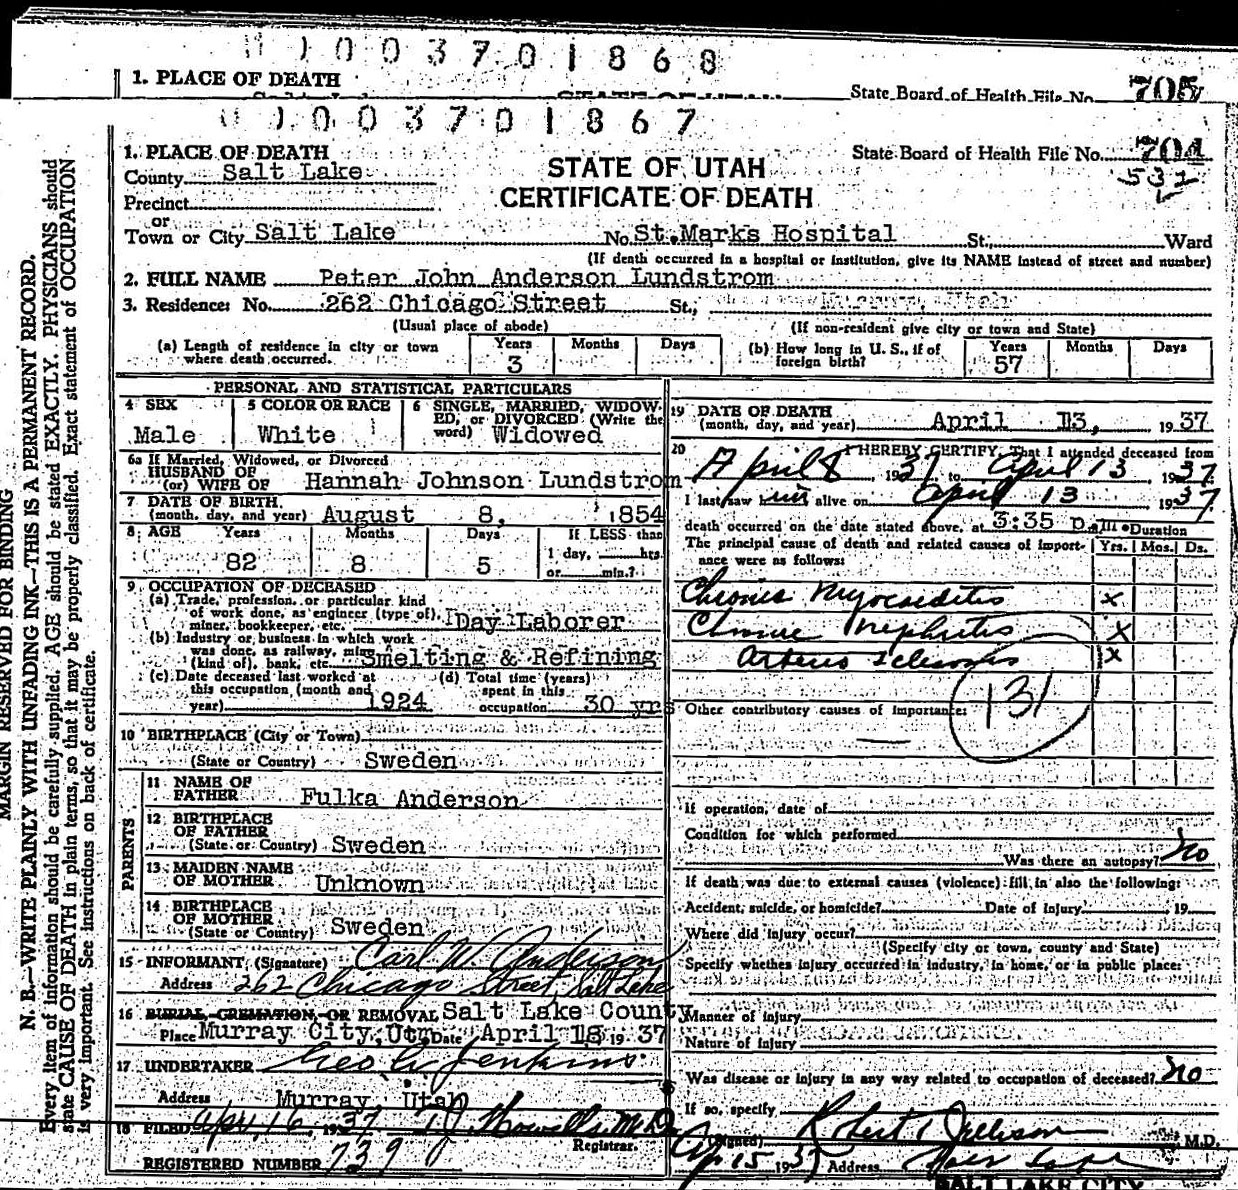 0 0 3 7 0 1 8 6 8
1. PLACE OF DEATH
State Board of Health File No. 705
0 0 3 7 0 1 8 6 7
1. PLACE OF DEATH
County Salt Lake
STATE OF UTAH
CERTIFICATE OF DEATH
State Board of Health File No. 704
537
Precinct
or
Town or City Salt Lake No. St. Marks Hospital St., Ward
(If death occurred in a hospital or institution, give its NAME instead of street and number)
2. FULL NAME Peter John Anderson Lundstrom
3. Residence: No. 262 Chicago Street St., Murray, Utah
(Usual place of abode) (If non-resident give city or town and State)
(a) Length of residence in city or town where death occurred. Years 3 Months Days
(b) How long in U. S., if of foreign birth? Years 57 Months Days
PERSONAL AND STATISTICAL PARTICULARS
4 SEX Male
5 COLOR OR RACE White
6 SINGLE, MARRIED, WIDOWED, or DIVORCED (Write the word) Widowed
6a If Married, Widowed, or Divorced
HUSBAND OF
(or) WIFE OF Hannah Johnson Lundstrom
7 DATE OF BIRTH.
(month, day, and year) August 8, 1854
8 AGE Years 82 Months 8 Days 5 If LESS than 1 day, hrs. or min.?
9 OCCUPATION OF DECEASED
(a) Trade, profession, or particular kind of work done, as engineer (type of), miner, bookkeeper, etc. Day Laborer
(b) Industry or business in which work was done, as railway, mine (kind of), bank, etc. Smelting & Refining
(c) Date deceased last worked at this occupation (month and year) 1924
(d) Total time (years) spent in this occupation 30 yrs
10 BIRTHPLACE (City or Town)
(State or Country) Sweden
PARENTS
11 NAME OF FATHER Fulka Anderson
12 BIRTHPLACE OF FATHER
(State or Country) Sweden
13 MAIDEN NAME OF MOTHER Unknown
14 BIRTHPLACE OF MOTHER
(State or Country) Sweden
15 INFORMANT (Signature) Carl W. Anderson
Address 262 Chicago Street, Salt Lake
16 BURIAL, CREMATION, OR REMOVAL Salt Lake County
Place Murray City, Utah Date April 18 19 37
17 UNDERTAKER Geo Jenkins
Address Murray, Utah
18 FILED Apr. 16, 1937 Howells M.D.
Registrar.
REGISTERED NUMBER 739
19 DATE OF DEATH
(month, day, and year) April 13, 19 37
20 I HEREBY CERTIFY, That I attended deceased from
April 8, 1937 to April 13 1937
I last saw him alive on April 13 1937
death occurred on the date stated above, at 3:35 p. m. Duration
The principal cause of death and related causes of importance were as follows: Yrs. Mos. Ds.
Chronic Myocarditis x
Chronic Nephritis x
Arterio Sclerosis x
131
Other contributory causes of importance:
If operation, date of
Condition for which performed
Was there an autopsy? No
If death was due to external causes (violence) fill in also the following:
Accident, suicide, or homicide? Date of injury , 19
Where did injury occur?
(Specify city or town, county and State)
Specify whether injury occurred in industry, in home, or in public place:
Manner of injury
Nature of injury
Was disease or injury in any way related to occupation of deceased? No
If so, specify
(Signed) Robert M.D.
Ap 15 1937 Address Salt Lake
SALT LAKE CITY
MARGIN RESERVED FOR BINDING
N. B.—WRITE PLAINLY WITH UNFADING INK—THIS IS A PERMANENT RECORD.
Every item of information should be carefully supplied. AGE should be stated EXACTLY. PHYSICIANS should
state CAUSE OF DEATH in plain terms, so that it may be properly classified. Exact statement of OCCUPATION
is very important. See instructions on back of certificate.